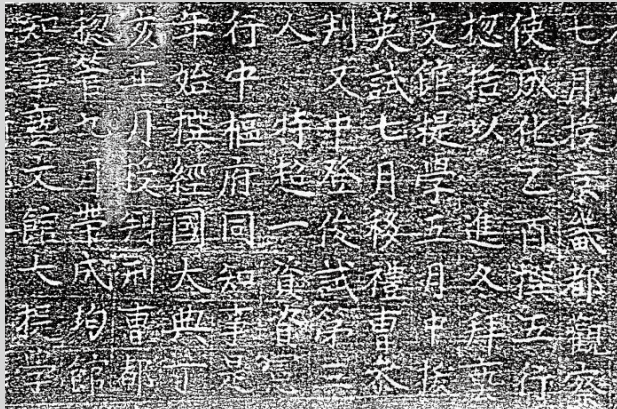 七月授京畿都觀察
使成化乙酉五行
揔括以進久拜藝
文館提學五月中拔
英試七月移禮曹參
判又中登俊試第三
人特超一資
行中樞府同知事是
年始撰經國大典丁
亥正月授刑曹都
揔管九月帶成均館
知事藝文館大提學